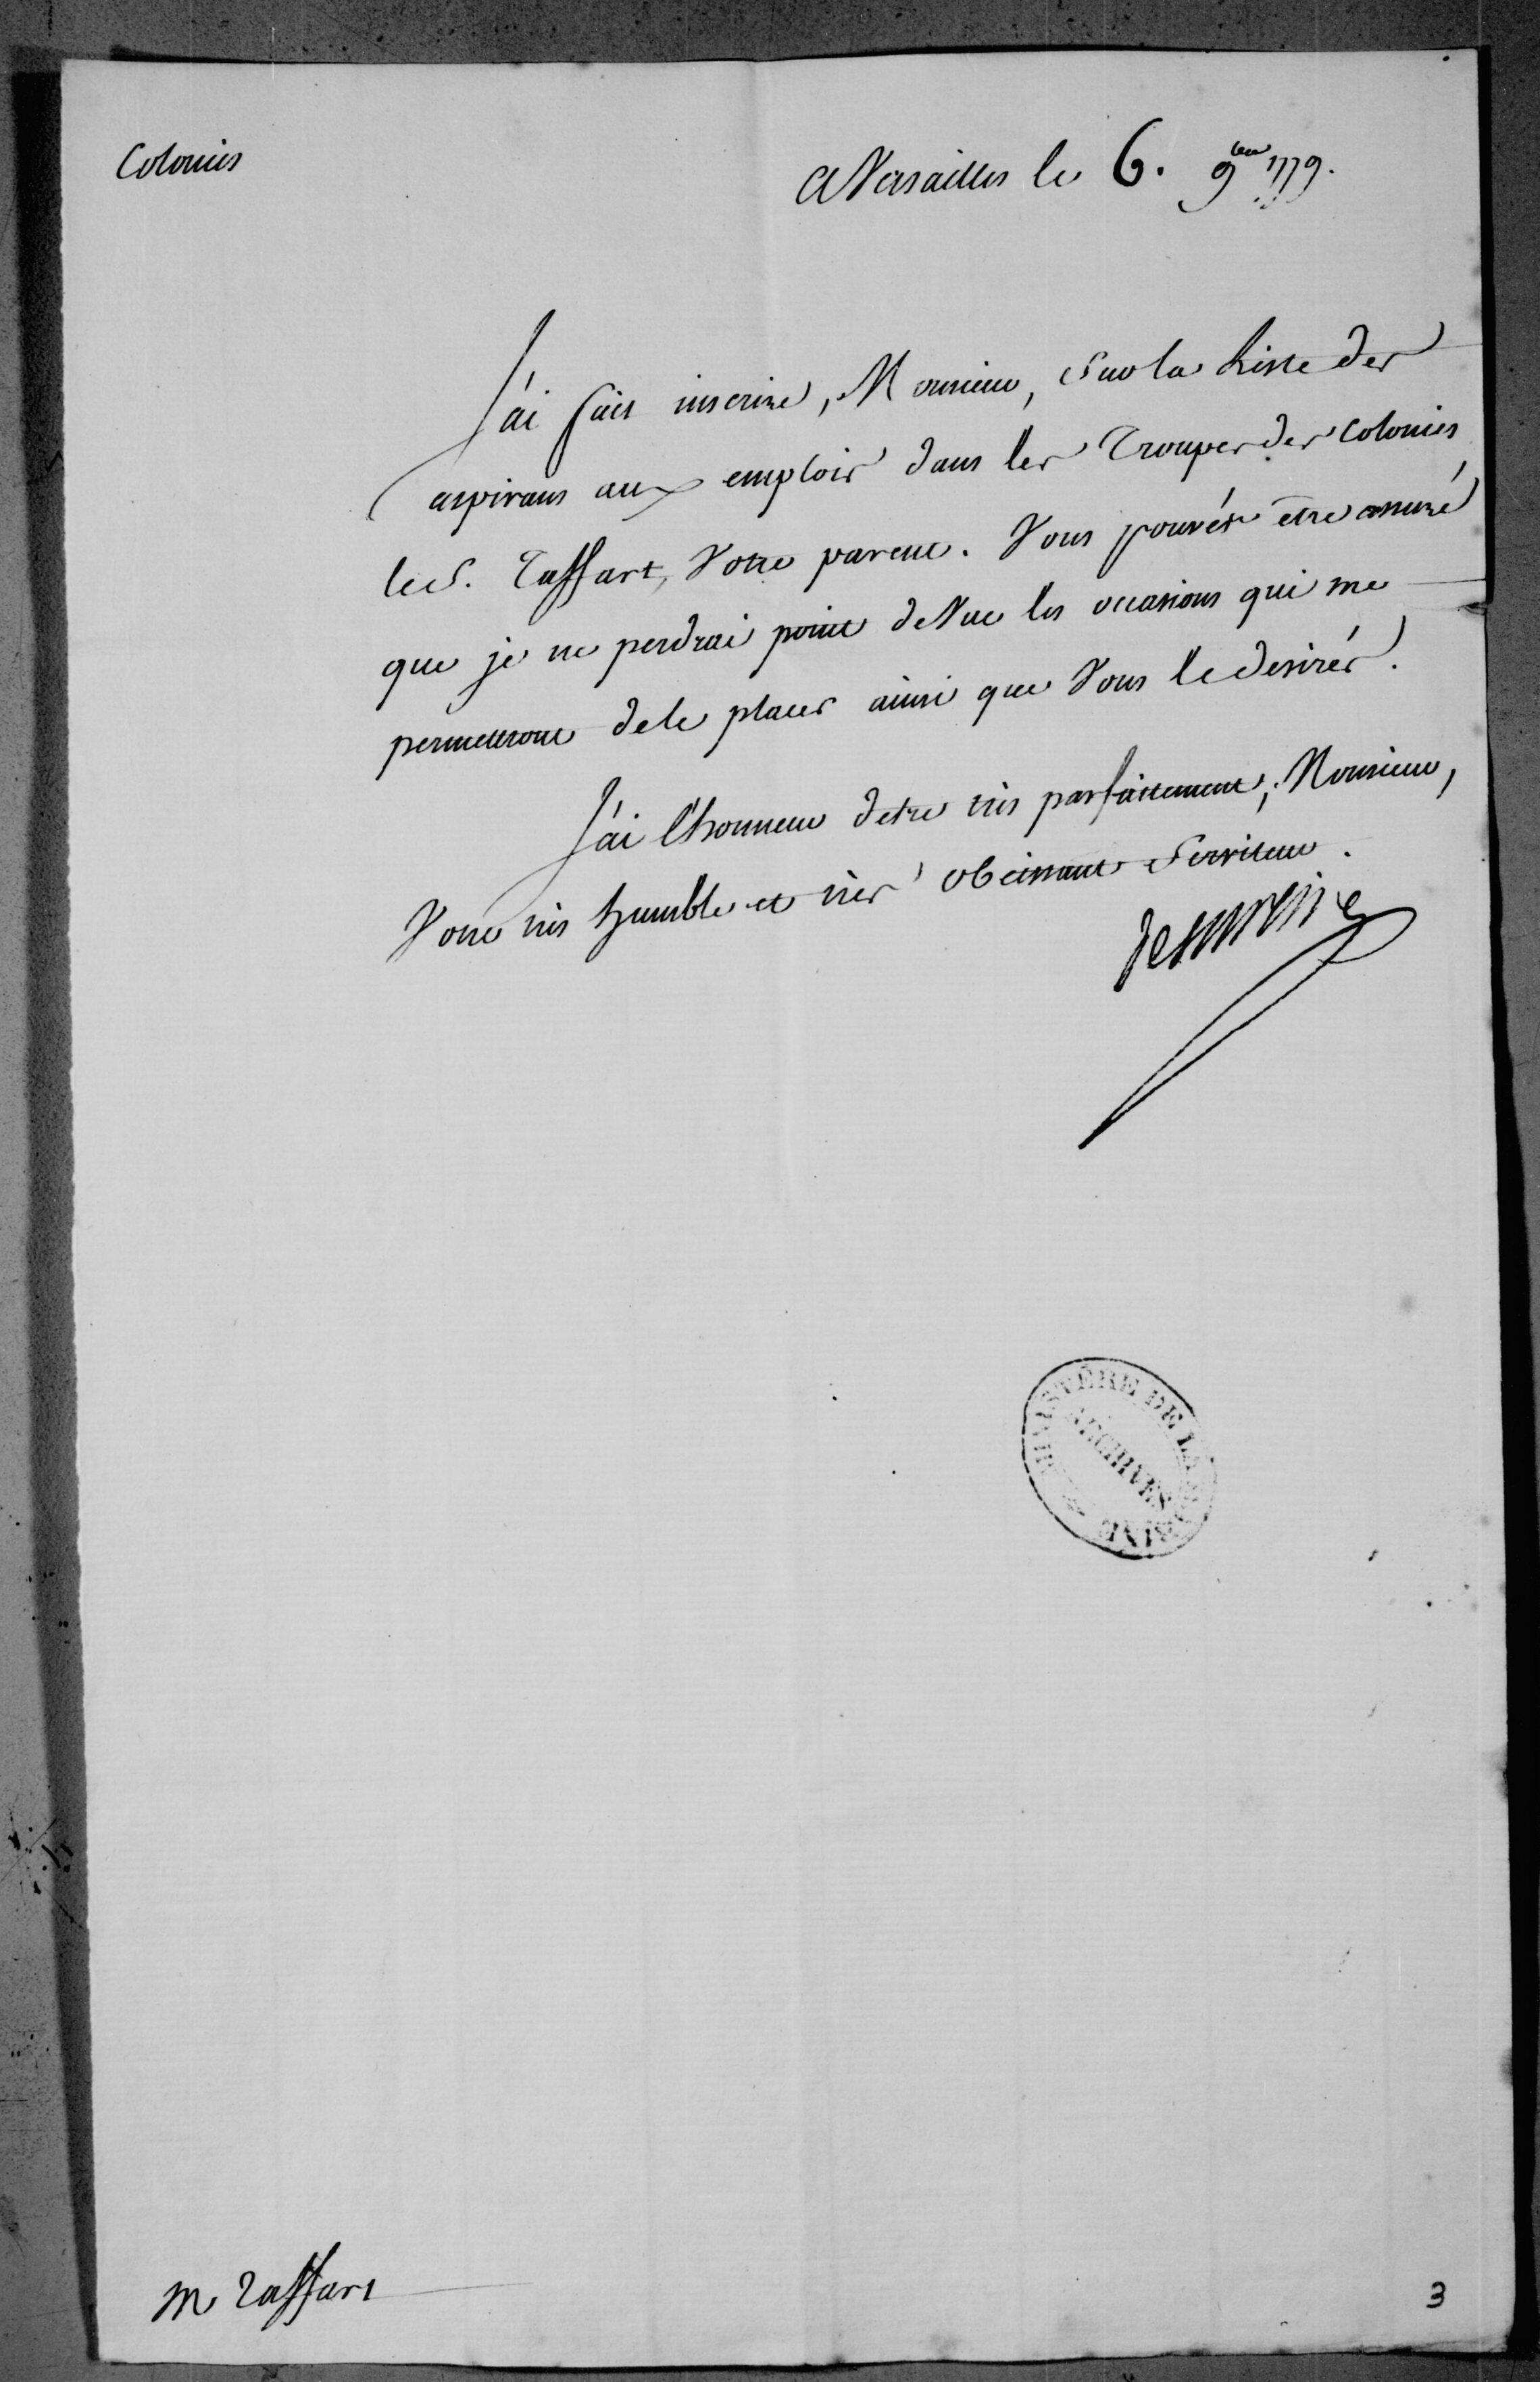 Colonies
A Versailles le 6. 9bre 1779.
J'ai fait inscrire, Monsieur, sur la Liste des
aspirans aux emplois dans les Troupes des Colonies
le S. Taffart, Votre parent. Vous pouvés être assuré
que je ne perdrai point de Vue les occasions qui me
permettront de le placer ainsi que Vous le desirés.
J'ai l'honneur d'etre très parfaitement, Monsieur,
Votre très humble et très obeissant Serviteur.
De Sartine
MINISTÈRE DE LA MARINE
ARCHIVES
M Taffart
3